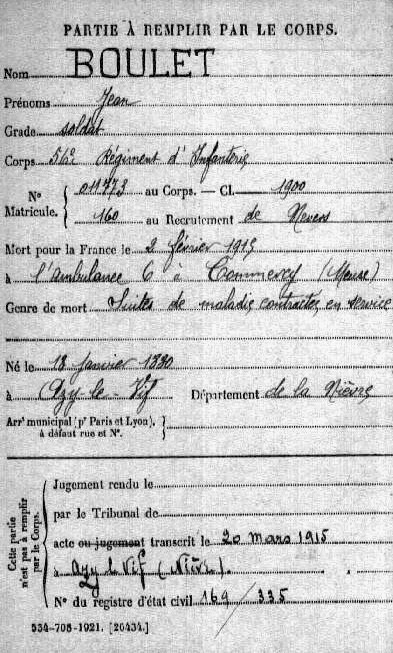 PARTIE À REMPLIR PAR LE CORPS.
Nom BOULET
Prénoms Jean
Grade soldat
Corps 56e Régiment d'Infanterie
N° Matricule. { 011773 au Corps. — Cl. 1900
160 au Recrutement de Nevers
Mort pour la France le 2 février 1915
à l'ambulance 6 à Commercy (Meuse)
Genre de mort Suites de maladie contractée en service
Né le 18 janvier 1880
à Azy-le-Vif Département de la Nièvre
Arrt municipal (pr Paris et Lyon), à défaut rue et N°. }
Cette partie n'est pas à remplir par le Corps.
Jugement rendu le
par le Tribunal de
acte ou jugement transcrit le 20 mars 1915
à Azy le Vif (Nièvre).
N° du registre d'état civil 169/335
534-708-1921. [26434.]